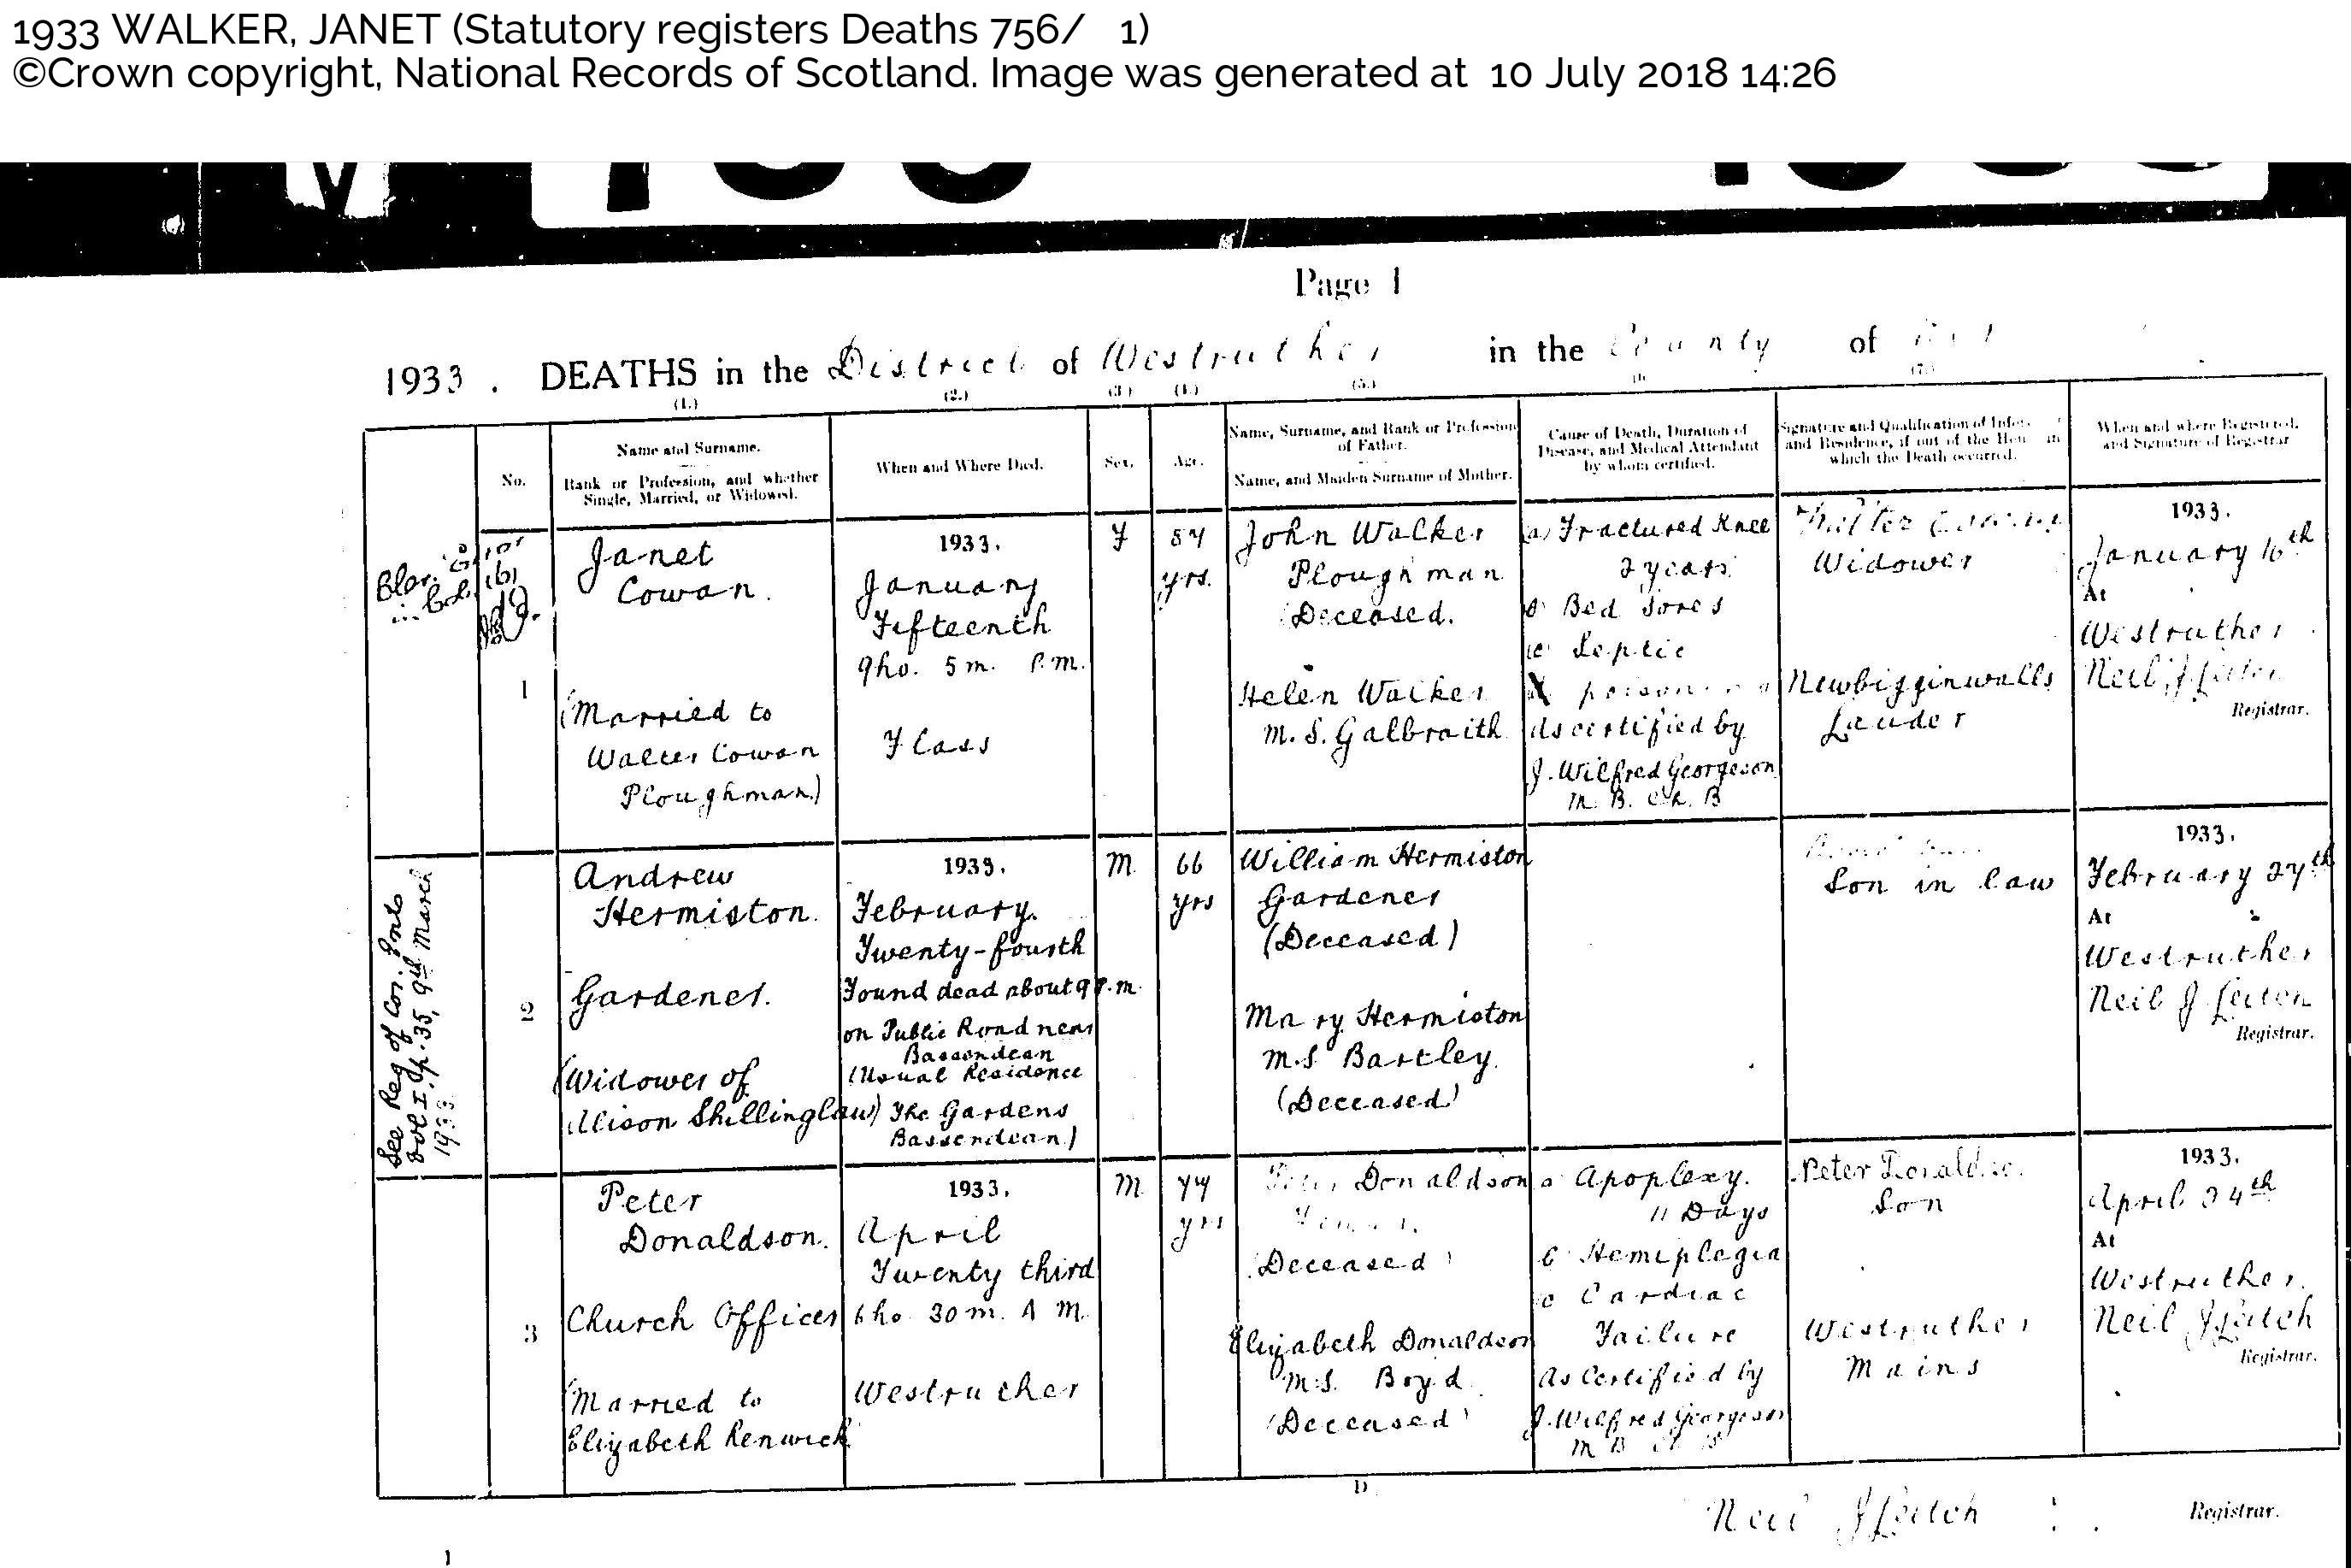 1933 WALKER, JANET (Statutory registers Deaths 756/ 1)
©Crown copyright, National Records of Scotland. Image was generated at 10 July 2018 14:26
Page 1
1933. DEATHS in the District of Westruther in the County of
(1.) (2.) (3.) (4.) (5.) (7.)
No.
Name and Surname.
Rank or Profession, and whether
Single, Married, or Widowed.
When and Where Died.
Sex.
Age.
Name, Surname, and Rank or Profession
of Father.
Name, and Maiden Surname of Mother.
Cause of Death, Duration of
Disease, and Medical Attendant
by whom certified.
Signature and Qualification of
and Residence, if out of the House in
which the Death occurred.
When and where Registered,
and Signature of Registrar
1
Janet
Cowan.
(Married to
Walter Cowan
Ploughman.)
1933.
January
Fifteenth
9 ho. 5 m. P.m.
Flass
F
57
yrs.
John Walker
Ploughman
(Deceased.
Helen Walker
m. S. Galbraith
(a) Fractured Knee
2 years
Bed sores
Septic
poisoning
As certified by
J. Wilfred Georgeson
M. B. Ch. B
Walter Cowan
Widower
Newbigginwalls
Lauder
1933.
January 16th
At
Westruther
Neil J Leitch
Registrar.
See Reg of Cor. Ents
Vol I. p. 35, 9th March
1933.
2
Andrew
Hermiston.
Gardener.
(Widower of
Alison Shillinglaw)
1933.
February.
Twenty-fourth
Found dead about 9 P.m.
on Public Road near
Bassendean
(Usual Residence
The Gardens
Bassendean.)
M
66
yrs
William Hermiston
Gardener
(Deceased)
Mary Hermiston
M.S Bartley.
(Deceased)
Son in law
1933.
February 27th
At
Westruther
Neil J Leitch
Registrar.
3
Peter
Donaldson.
Church Officer
(Married to
Elizabeth Renwick
1933.
April
Twenty third
6 ho. 30 m. A M.
Westruther
M
77
yrs
Donaldson
(Deceased)
Elizabeth Donaldson
M.S. Boyd
(Deceased)
a Apoplexy.
11 Days
b Hemiplegia
c Cardiac
Failure
As Certified by
J. Wilfred Georgeson
M B Ch B
Peter Donaldson
Son
Westruther
Mains
1933.
April 24th
At
Westruther.
Neil J Leitch
Registrar.
D
Neil J Leitch Registrar.
1